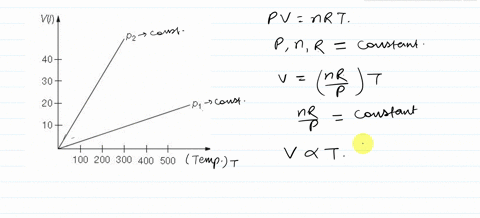 V(l)
p₂ → const.
40
30
20
10
p₁ → const.
100 200 300 400 500 (Temp.) T
PV = nRT.
P, n, R = constant.
V = (nR/P) T
nR/P = constant
V ∝ T.